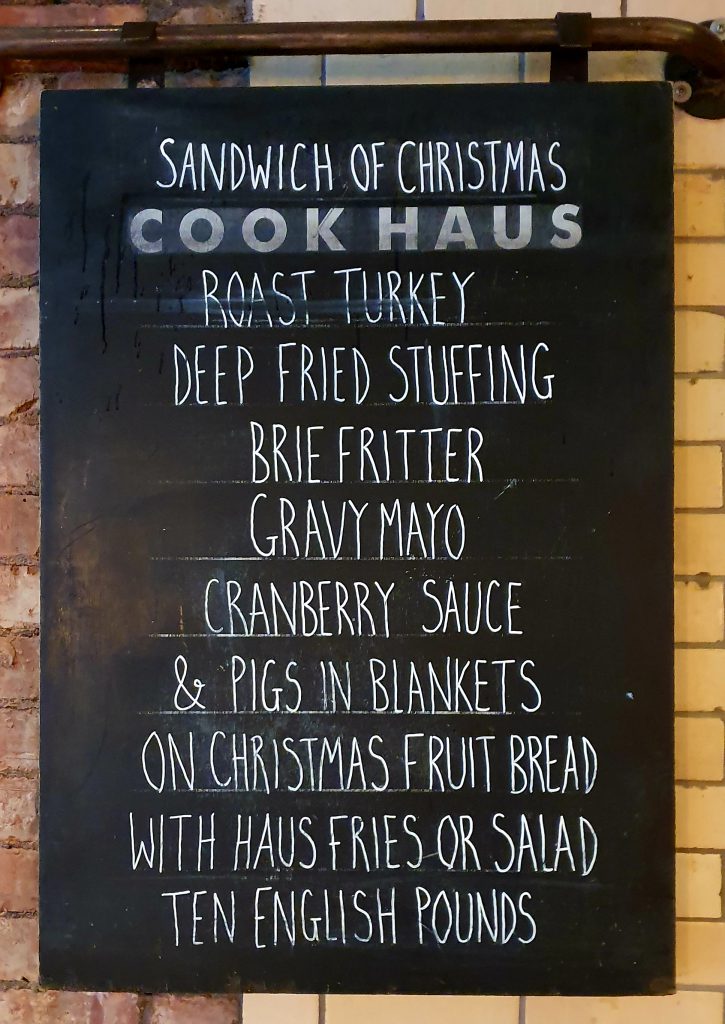 SANDWICH OF CHRISTMAS
COOK HAUS
ROAST TURKEY
DEEP FRIED STUFFING
BRIE FRITTER
GRAVY MAYO
CRANBERRY SAUCE
& PIGS IN BLANKETS
ON CHRISTMAS FRUIT BREAD
WITH HAUS FRIES OR SALAD
TEN ENGLISH POUNDS